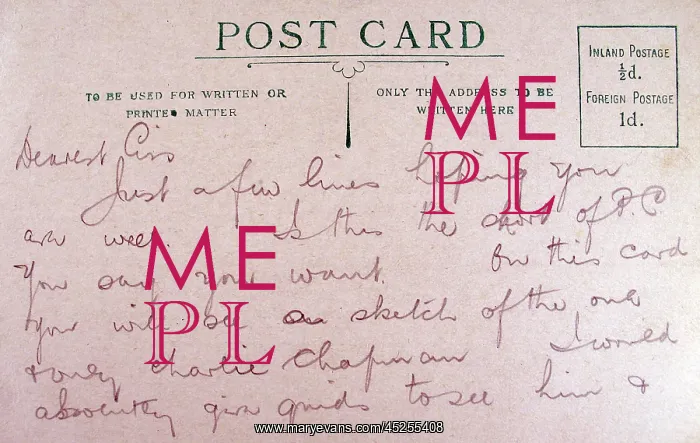 POST CARD
TO BE USED FOR WRITTEN OR
PRINTED MATTER
ONLY THE ADDRESS TO BE
WRITTEN HERE
INLAND POSTAGE
½d.
FOREIGN POSTAGE
1d.
Dearest Ciss
Just a few lines hoping you
are well. Is this the sort of P.C
you say you want. On this card
you will see a sketch of the one
& only Charlie Chapman I would
absolutely give quids to see him &
ME
PL
ME
PL
www.maryevans.com/45255408